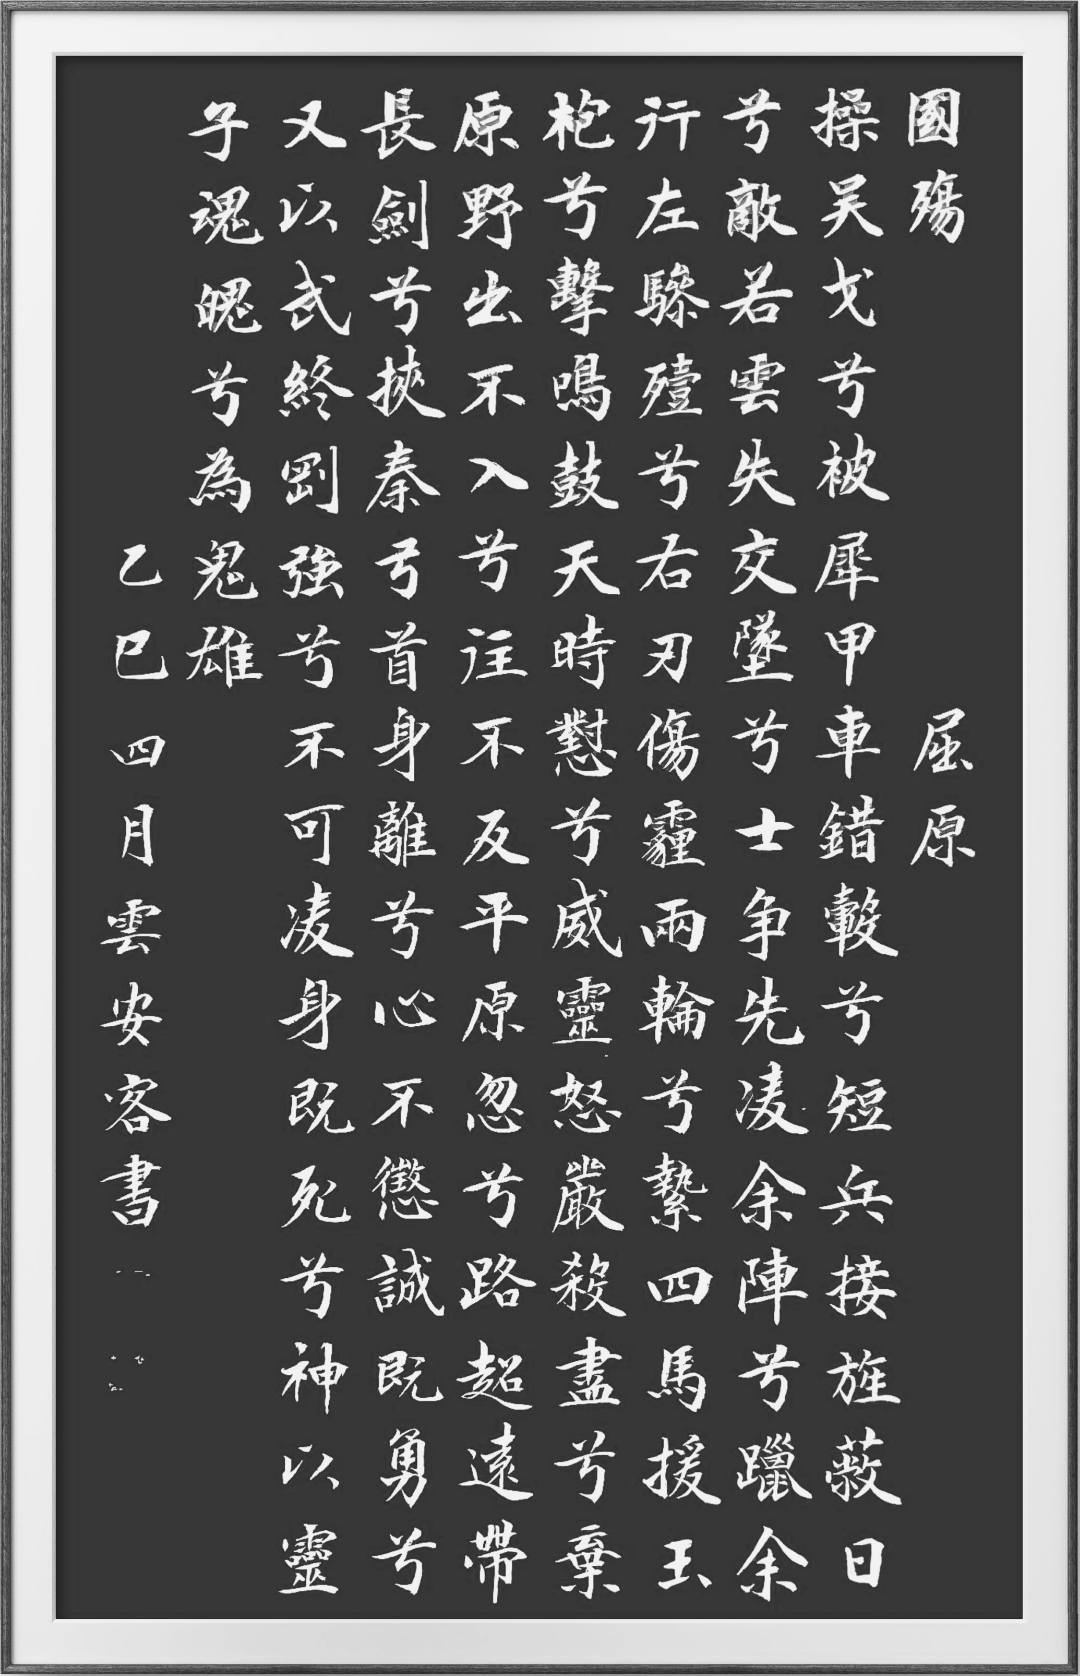 國殤 屈原
操吴戈兮被犀甲車錯轂兮短兵接旌蔽日
兮敵若雲失交墜兮士争先凌余陣兮躐余
行左驂殪兮右刃傷霾兩輪兮縶四馬援玉
枹兮擊鳴鼓天時懟兮威靈怒嚴殺盡兮棄
原野出不入兮往不反平原忽兮路超遠帶
長劍兮挾秦弓首身離兮心不懲誠既勇兮
又以武終剛強兮不可凌身既死兮神以靈
子魂魄兮為鬼雄
乙巳四月雲安客書